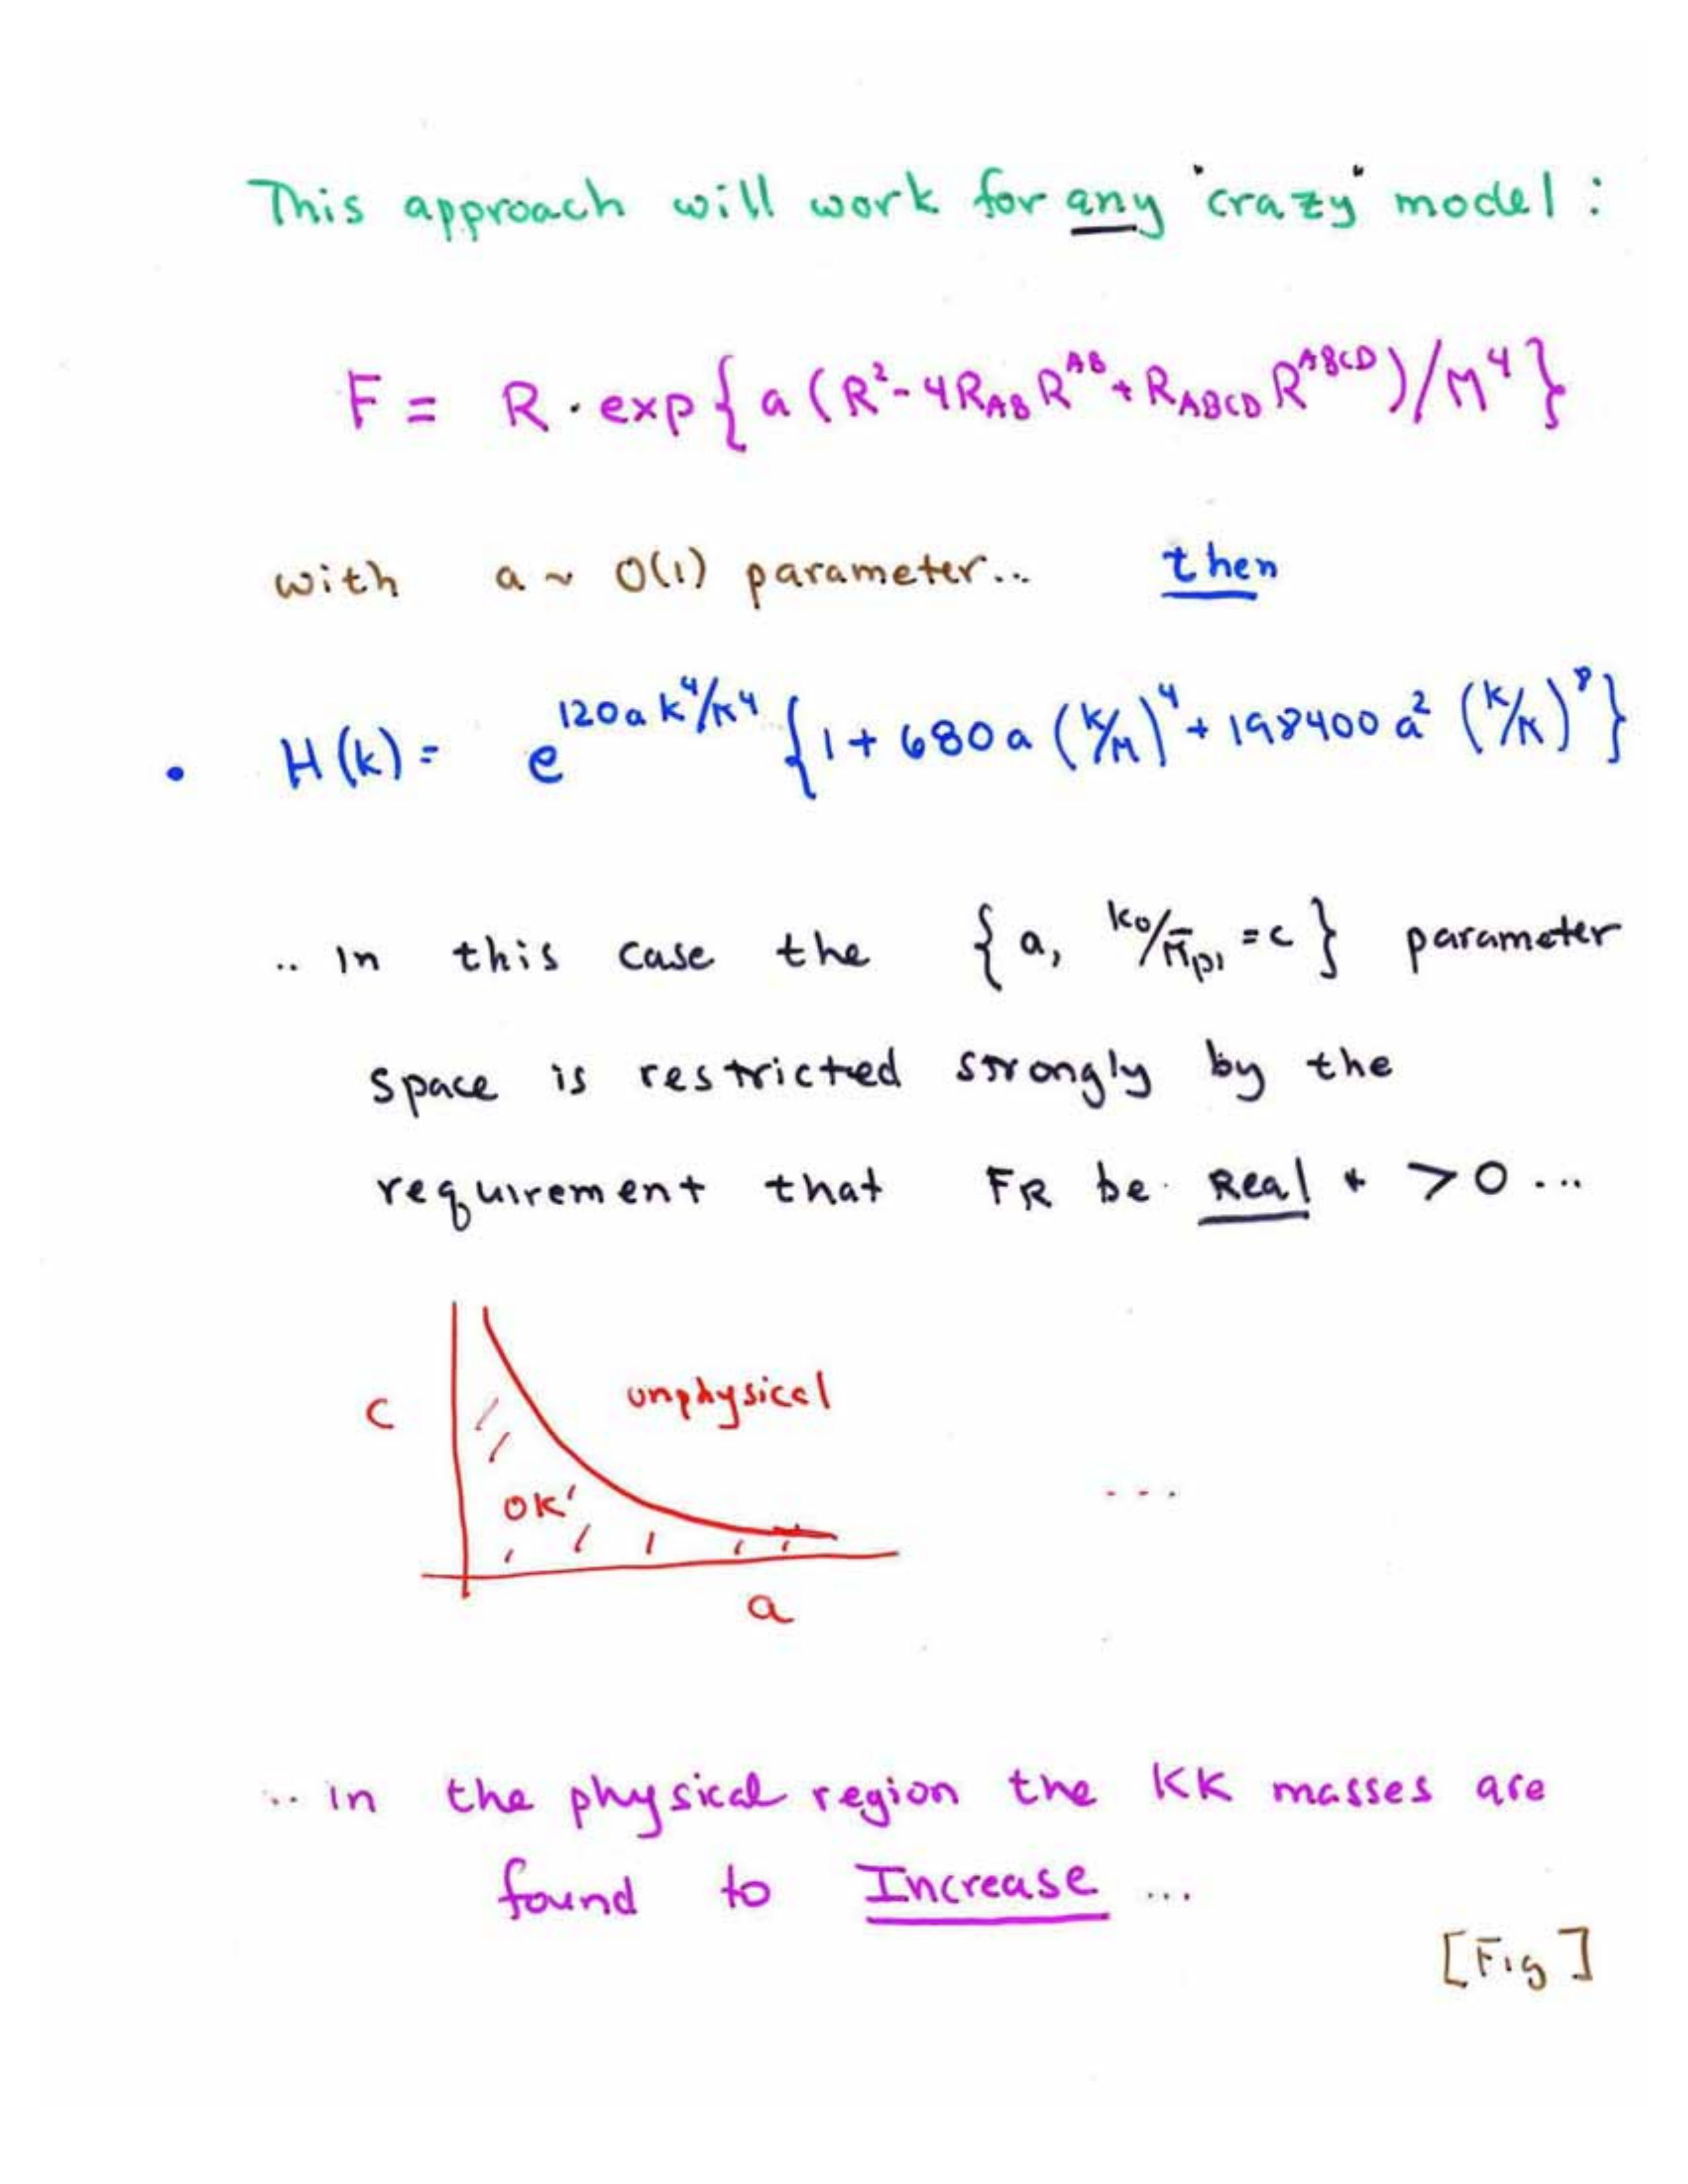 This approach will work for any "crazy" model :
F = R · exp{ a (R² - 4 R_AB R^AB + R_ABCD R^ABCD)/M⁴ }
with a ~ O(1) parameter... then
• H(k) = e^{120 a k⁴/M⁴} { 1 + 680 a (k/M)⁴ + 198400 a² (k/M)⁸ }
.. In this case the { a, k₀/M̄_pl = c } parameter
space is restricted strongly by the
requirement that F_R be Real + > 0 ...
c
unphysical
OK!
...
a
... in the physical region the KK masses are
found to Increase ...
[Fig]